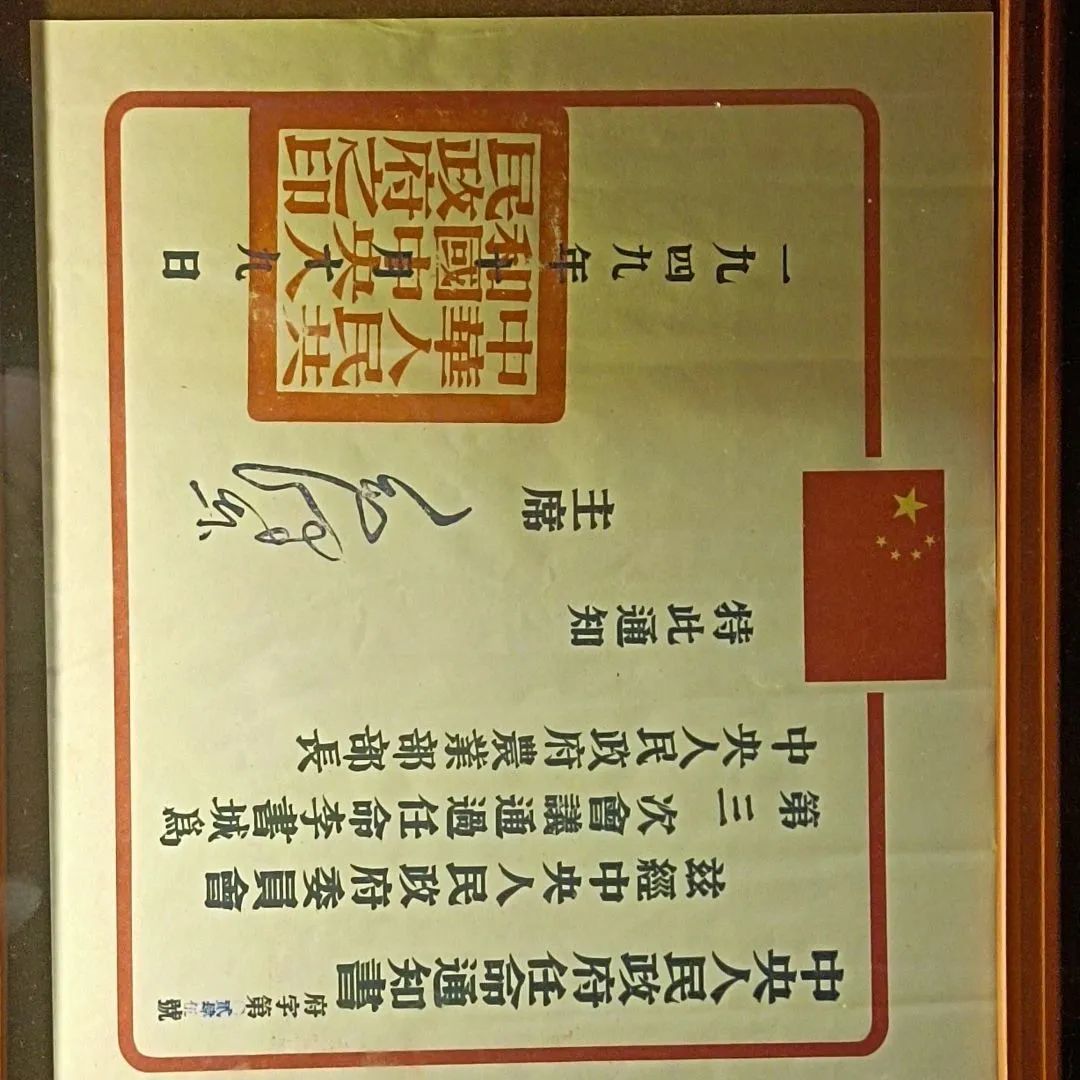 中央人民政府任命通知書
府字第貳肆伍號
兹經中央人民政府委員會
第三次會議通過任命李書城爲
中央人民政府農業部部長
特此通知
主席
毛澤东
一九四九年十月十九日
中華人民共
和國中央人
民政府之印